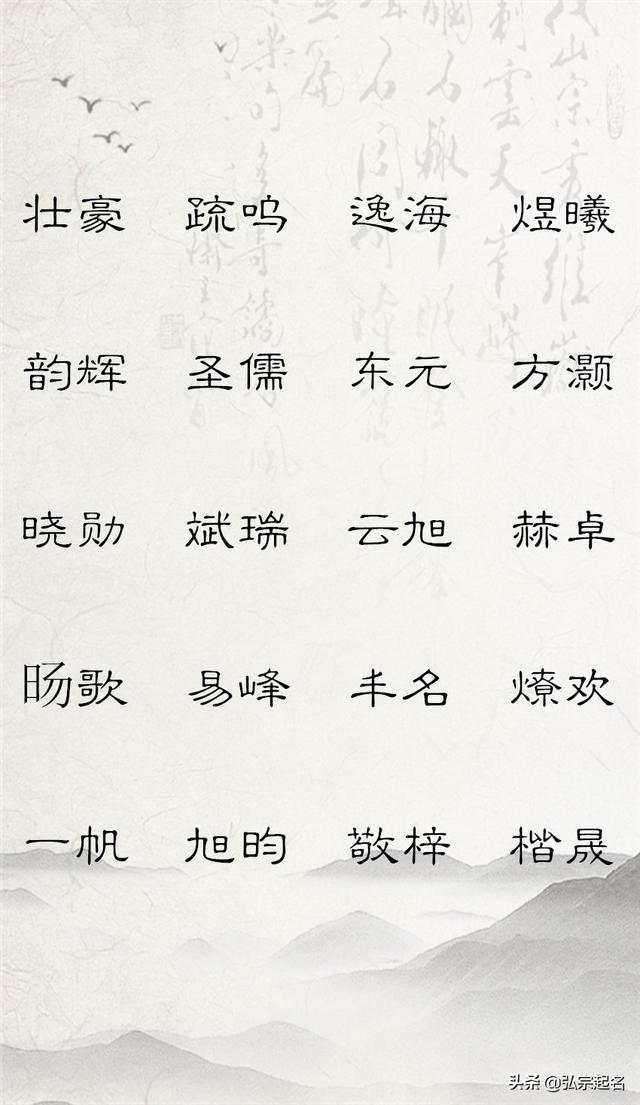 壮豪 疏呜 逸海 煜曦
韵辉 圣儒 东元 方灏
晓勋 斌瑞 云旭 赫卓
旸歌 易峰 丰名 燎欢
一帆 旭昀 敬梓 楷晟
头条 @弘宗起名